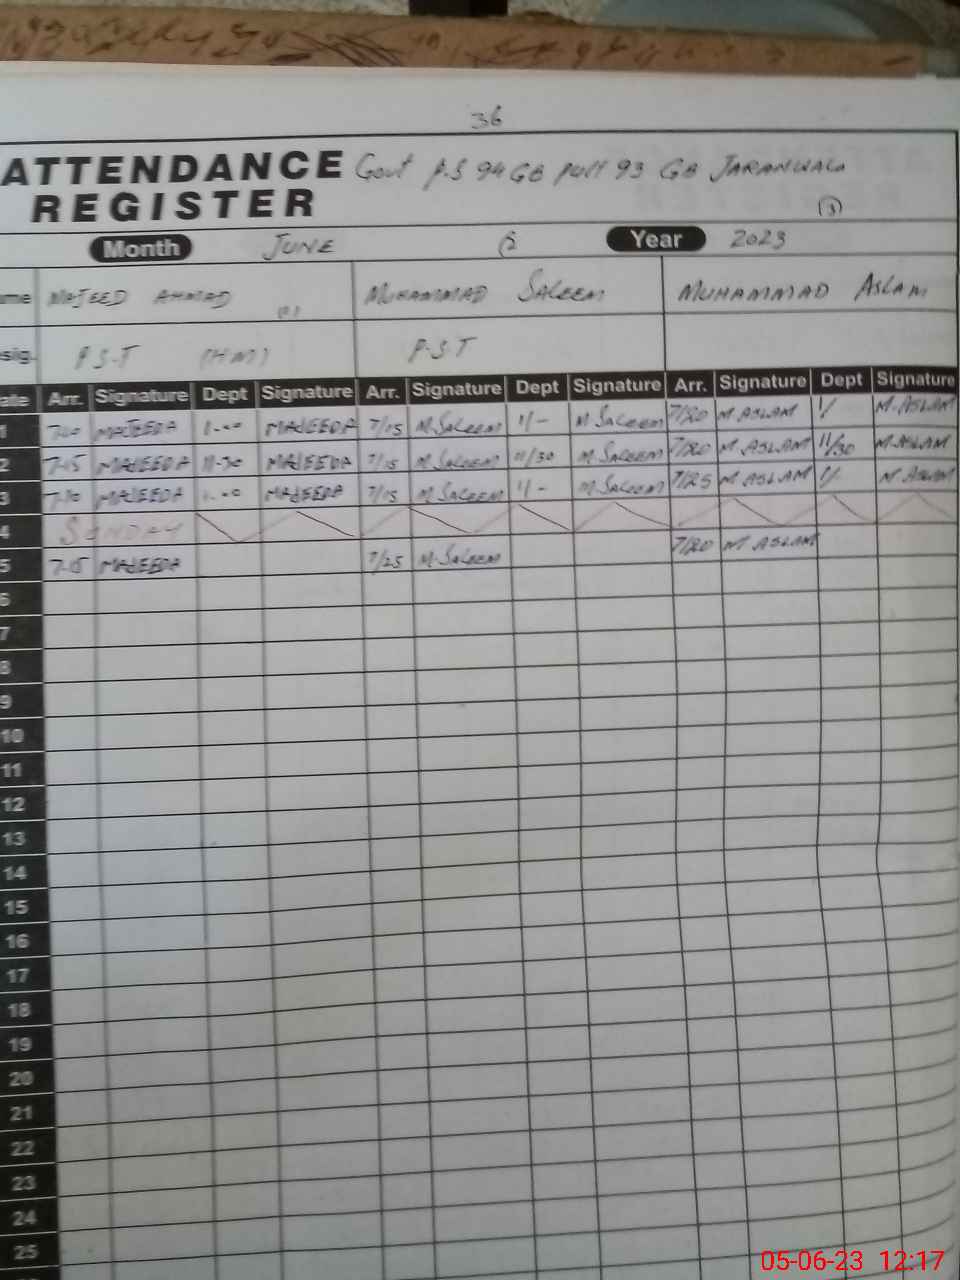 36
ATTENDANCE Govt P.S 94 GB 93 GB JARANWALA
REGISTER (3)
Month JUNE (2 Year 2023
me MAJEED AHMAD (1) MUHAMMAD SALEEM MUHAMMAD ASLAM
sig. P.S.T (HM) P.S.T
ate Arr. Signature Dept Signature Arr. Signature Dept Signature Arr. Signature Dept Signature
1 MAJEEDA 1-00 MAJEEDA 7/15 M.SALEEM 1/- M SALEEM 7/20 M ASLAM 1/ M.ASLAM
2 7-15 MAJEEDA 11-30 MAJEEDA 7/15 M SALEEM 11/30 M SALEEM 7/20 M ASLAM 11/30 M.ASLAM
3 7-10 MAJEEDA 1-00 MAJEEDA 7/15 M SALEEM 1/- M SALEEM 7/25 M ASLAM 1/ M ASLAM
4 SUNDAY
5 7-15 MAJEEDA 7/25 M.SALEEM 7/20 M ASLAM
6
7
8
9
10
11
12
13
14
15
16
17
18
19
20
21
22
23
24
25
05-06-23 12:17